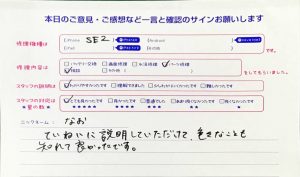 本日のご意見・ご感想など一言と確認のサインお願いします
修理機種は iPhone SE2 iPad
修理内容は バッテリー交換 画面修理 水没修理 パーツ修理
その他 をしてもらいました。
スタッフの説明は わかりやすかったです 理解できました
スタッフの対応は とても良かったです 良かったです 普通でした
ニックネーム: なお
ていねいに説明していただけて、色々なことも
知れて良かったです。